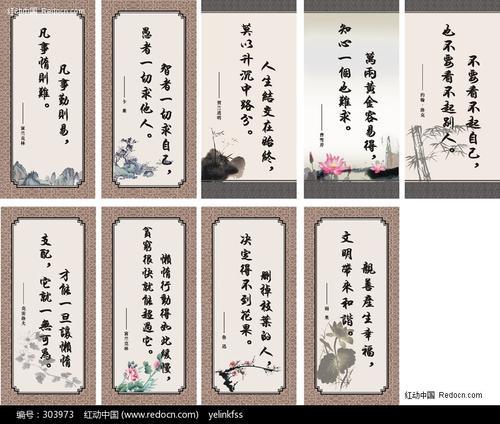 红动中国 Redocn.com
凡事勤則易，
凡事惰則難。
——富兰克林
智者一切求自己，
愚者一切求他人。
——卜熹
人生結交在始終，
莫以升沉中路分。
——贺兰进明
萬兩黃金容易得，
知心一個也難求。
——曹雪芹
不要看不起自己，
也不要看不起别人。
——约翰·洛克
才能一旦讓懶惰
支配，它就一無可爲。
懶惰行動得如此緩慢，
貧窮很快就能超過它。
——富兰克林
删掉枝葉的人，
决定得不到花果。
——鲁迅
親善產生幸福，
文明帶來和諧。
——雨果
红动中国 Redocn.com
编号：303973 红动中国 (www.redocn.com) yelinkfss